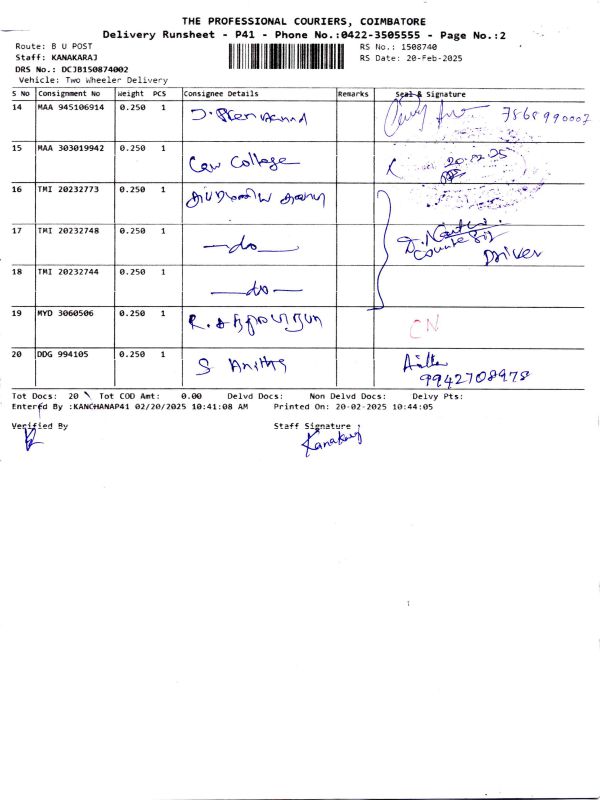 THE PROFESSIONAL COURIERS, COIMBATORE
Delivery Runsheet - P41 - Phone No.:0422-3505555 - Page No.:2
Route: B U POST RS No.: 1508740
Staff: KANAKARAJ RS Date: 20-Feb-2025
DRS No.: DCJB150874002
Vehicle: Two Wheeler Delivery
S No Consignment No Weight PCS Consignee Details Remarks Seal & Signature
14 MAA 945106914 0.250 1 7868990007
15 MAA 303019942 0.250 1 Law College 20.02.25
16 TMI 20232773 0.250 1
17 TMI 20232748 0.250 1 —do— Driver
18 TMI 20232744 0.250 1 —do—
19 MYD 3060506 0.250 1 CN
20 DDG 994105 0.250 1 S Anitha
9942708978
Tot Docs: 20 Tot COD Amt: 0.00 Delvd Docs: Non Delvd Docs: Delvy Pts:
Entered By :KANCHANAP41 02/20/2025 10:41:08 AM Printed On: 20-02-2025 10:44:05
Verified By Staff Signature :
Kanakaraj